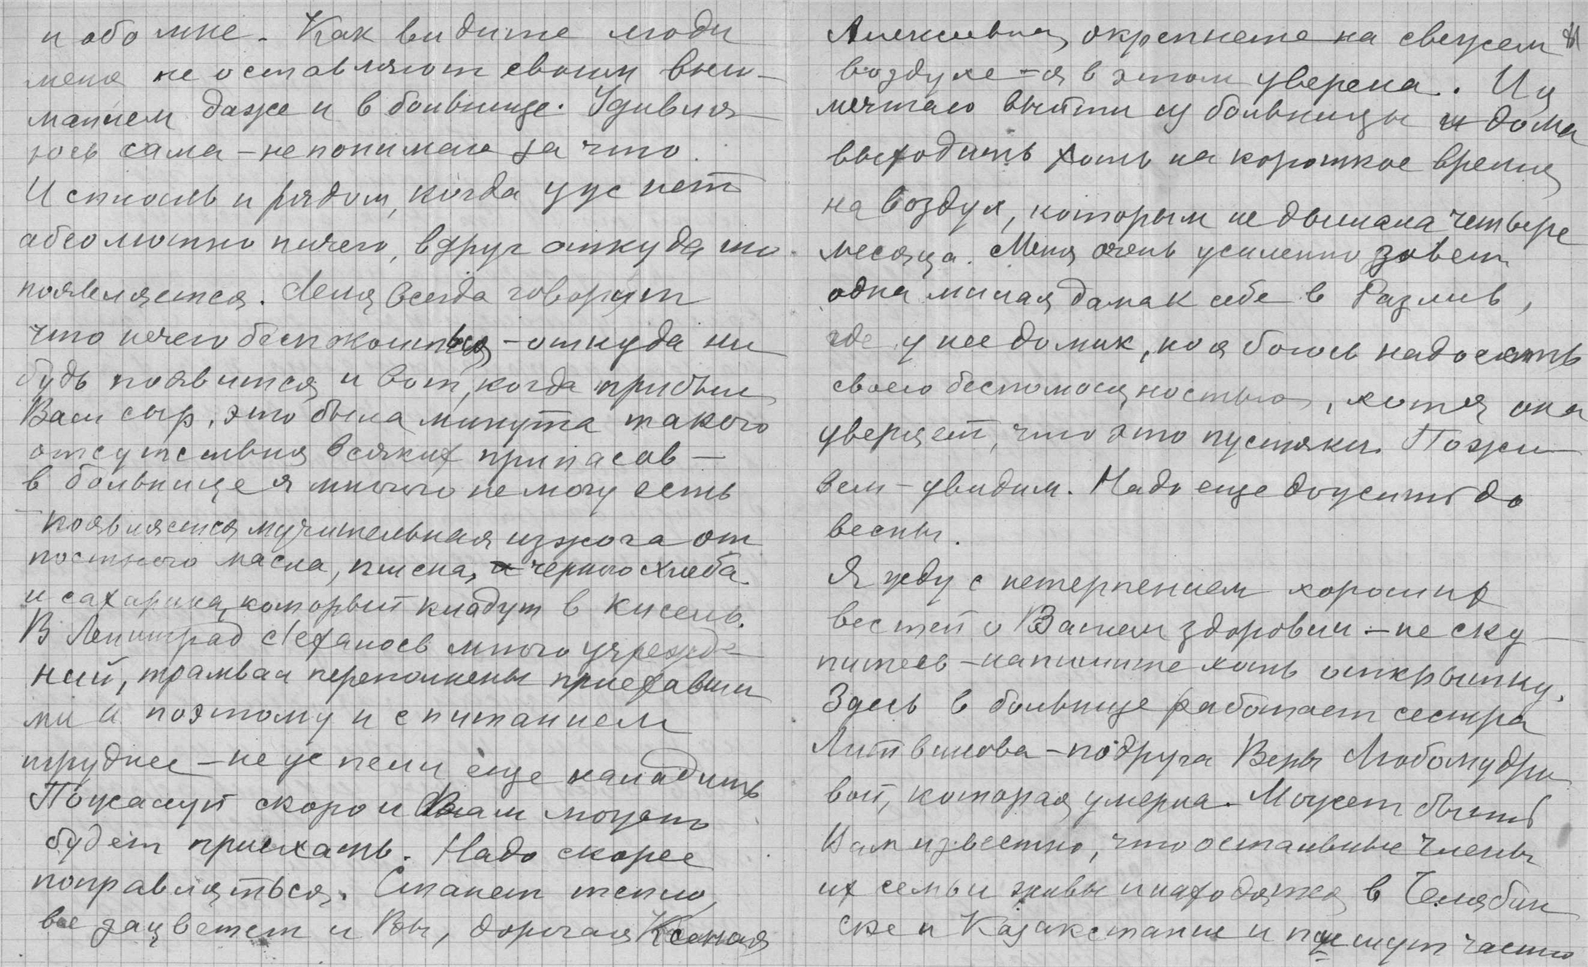 и обо мне. Как видите люди
меня не оставляют своим вни-
манием даже и в больнице. Удивля-
юсь сама – не понимаю за что.
И сплошь и рядом, когда уже нет
абсолютно ничего, вдруг откуда то
появляется. Леня всегда говорит
что нечего беспокоиться – откуда ни
будь появится и вот, когда прибыл
Ваш сыр, это была минута такого
отсутствия всяких припасов –
в больнице я многого не могу есть
появляется мучительная изжога от
постного масла, пшена, черного хлеба
и сахарина, который кладут в кисель.
В Ленинград съехалось много учрежде-
ний, трамваи переполнены приехавши
ми и поэтому и с питанием
труднее – не успели еще наладить
Пожалуй скоро и Вам можно
будет приехать. Надо скорее
поправляться. Станет тепло,
все зацветет и Вы, дорогая Ксения
Алексеевна, окрепнете на свежем
воздухе – я в этом уверена. И я
мечтаю выйти из больницы и дома
выходить хоть на короткое время
на воздух, которым не дышала четыре
месяца. Меня очень усиленно зовет
одна милая дама к себе в Разлив,
где у нее домик, но я боюсь надоесть
своею беспомощностью, хотя она
уверяет, что это пустяки. Пожи-
вем – увидим. Надо еще дожить до
весны.
Я жду с нетерпением хороших
вестей о Вашем здоровии – не ску-
питесь – напишите хоть открытку.
Здесь в больнице работает сестра
Литвинова – подруга Веры Любомудро
вой, которая умерла. Может быть
Вам известно, что остальные члены
их семьи живы и находятся в Челябин
ске и Казахстане и пишут часто